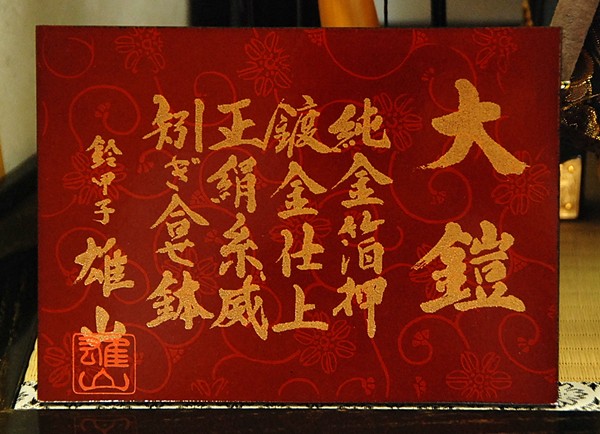 大鎧
純金箔押
鍍金仕上
正絹糸威
矧ぎ合せ鉢
鈴甲子
雄山
雄山